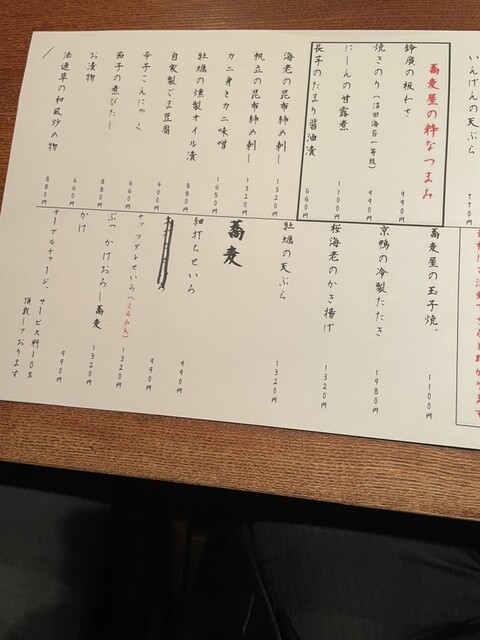 いんげんの天ぷら
蕎麦屋の粋なつまみ
鈴廣の板わさ 990円
焼きのり(沼田海苔一等級) 990円
にしんの甘露煮 1100円
長芋のたまり醤油漬 660円
海老の昆布締め刺し 1320円
帆立の昆布締め刺し 1320円
カニ身とカニ味噌 1650円
牡蠣の燻製オイル漬 880円
自家製ごま豆腐
辛子こんにゃく
茄子の煮びたし
お漬物 660円
法連草の和風炒め物 880円
蕎麦屋の玉子焼。 1100円
京鴨の冷製たたき 1980円
桜海老のかき揚げ 1320円
牡蠣の天ぷら 1320円
蕎麦
細打ちせいろ 990円
990円
1320円
ぶっかけおろし蕎麦 1320円
かけ 990円
テーブルチャージ、サービス料10%
頂戴しております